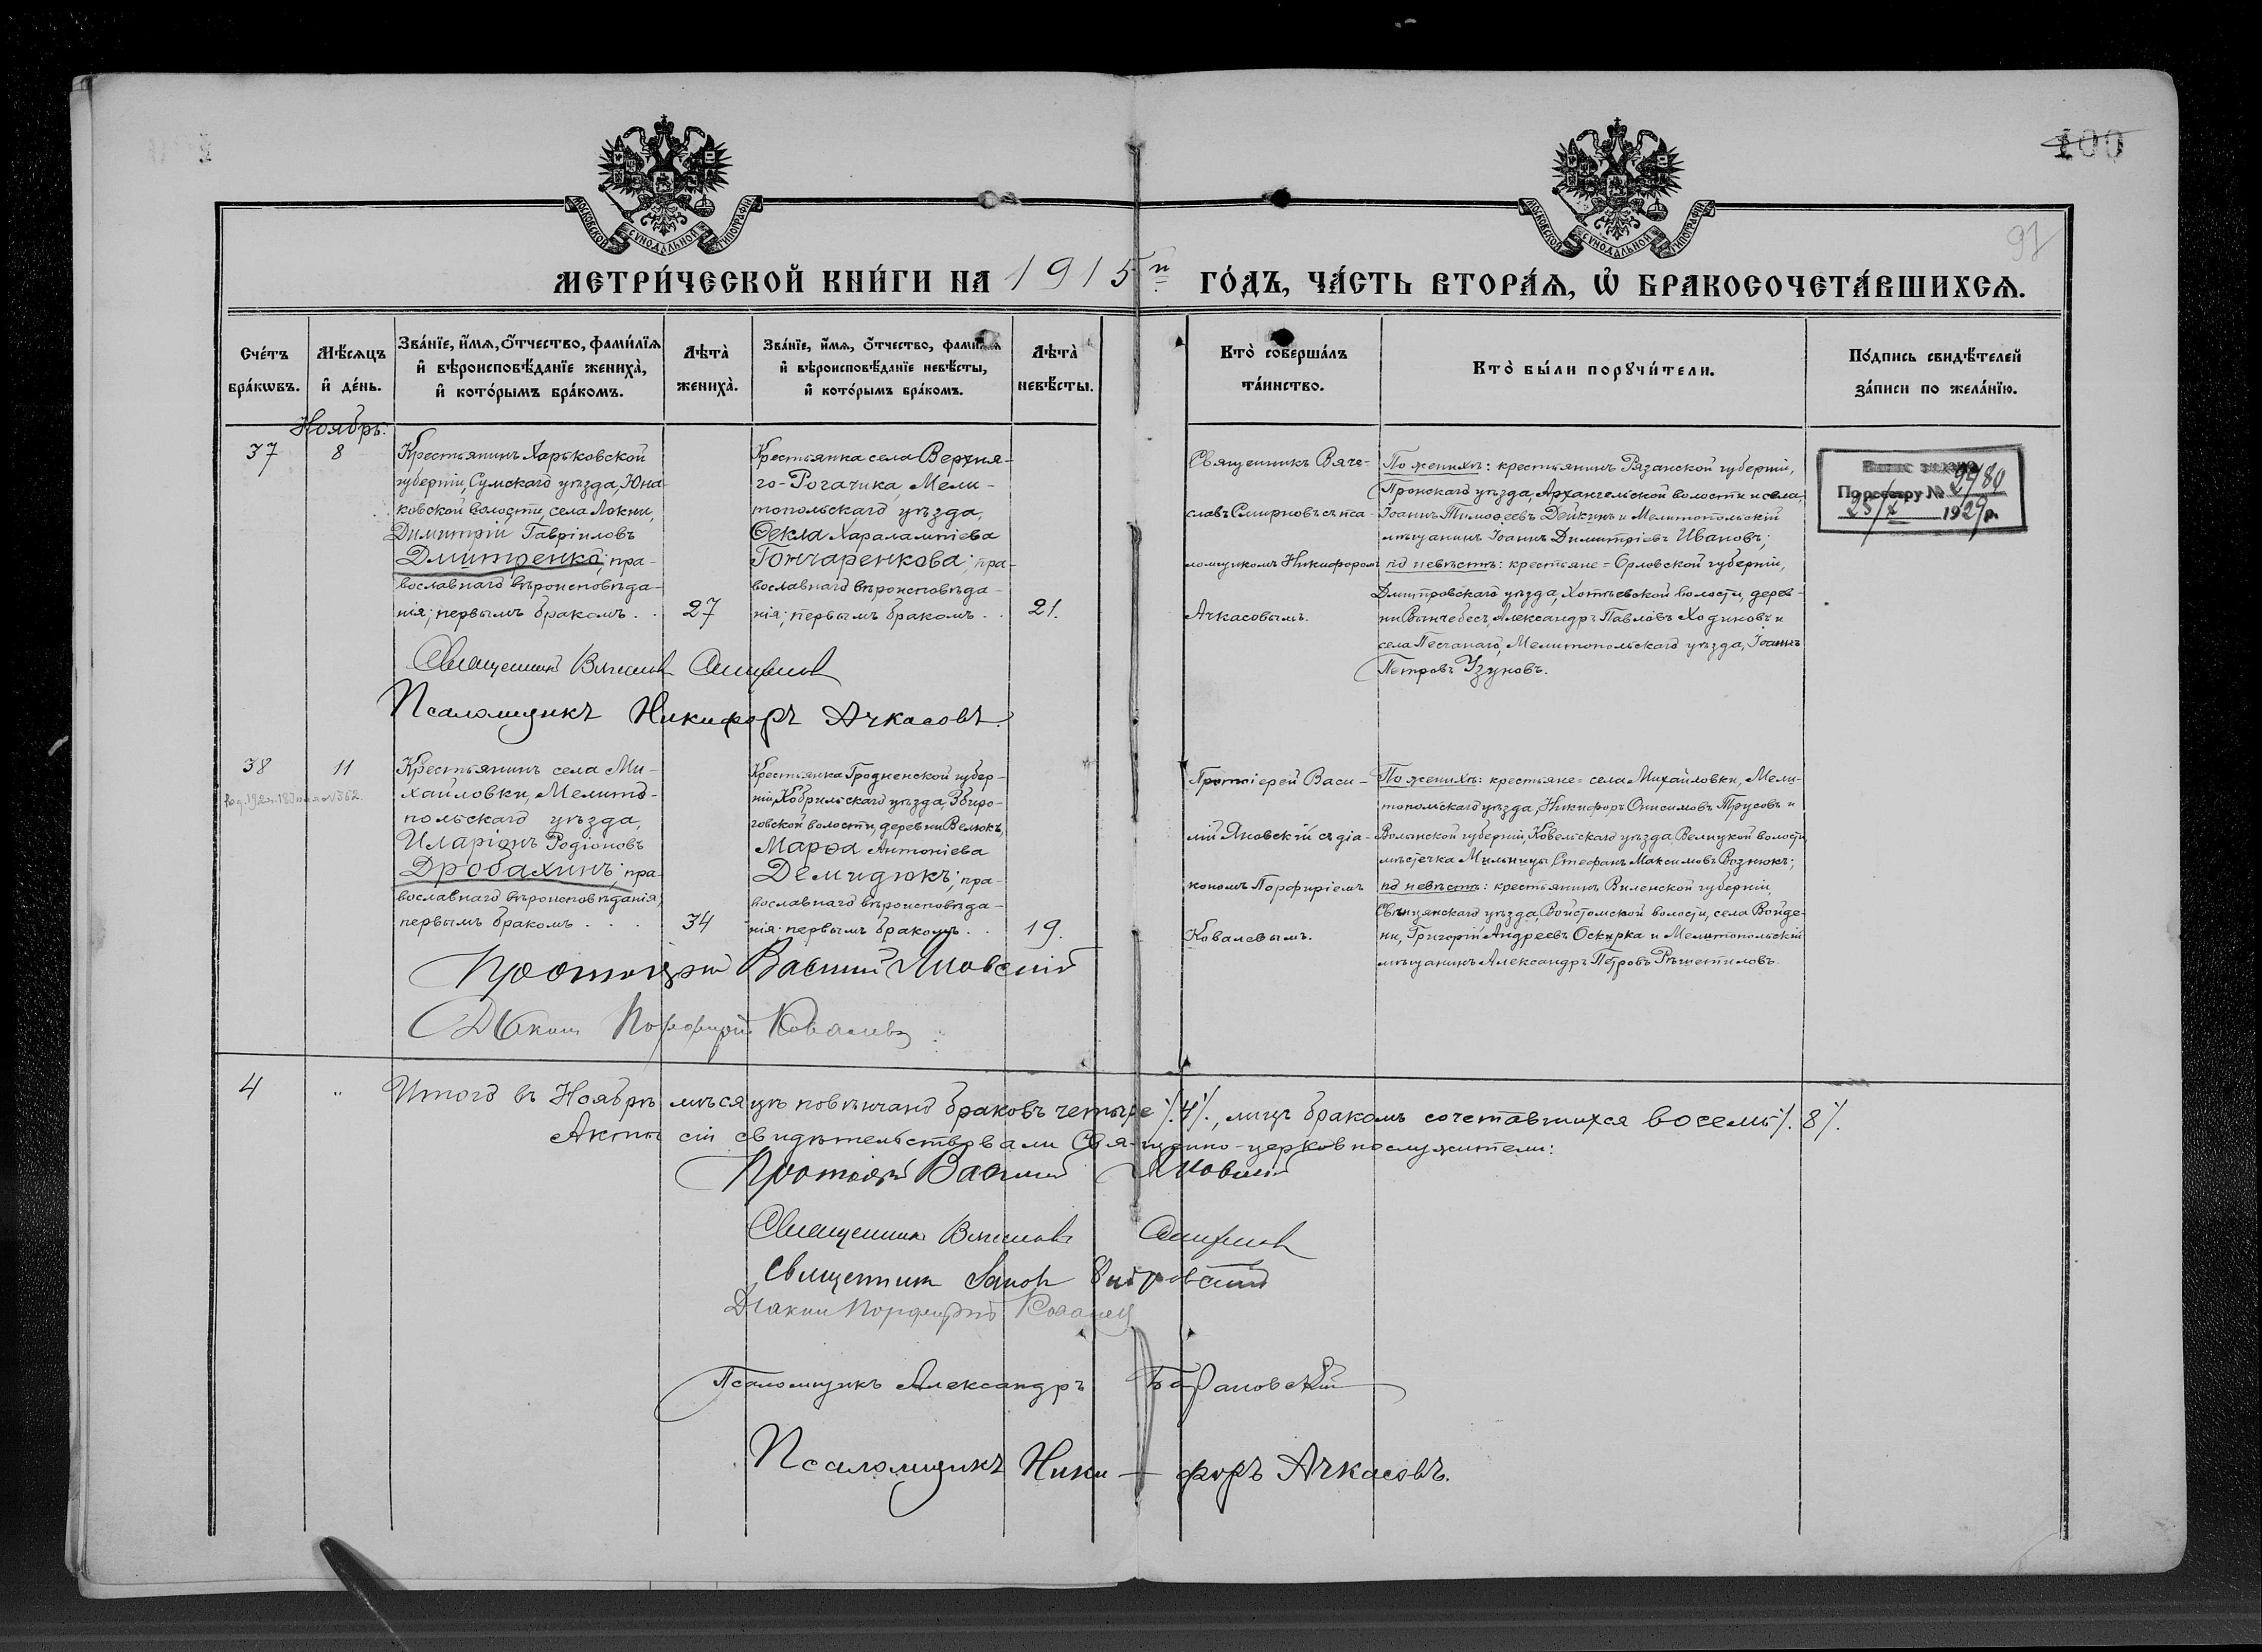 100
97
МОСКОВСКОЙ СѴНОДАЛЬНОЙ ТИПОГРАФІИ
МОСКОВСКОЙ СѴНОДАЛЬНОЙ ТИПОГРАФІИ
МЕТРИ́ЧЕСКОЙ КНИ́ГИ НА 1915й ГО́ДЪ, ЧА́СТЬ ВТОРА́Ѧ, Ѽ БРАКОСОЧЕТА́ВШИХСѦ.
Сче́тъ бра́кѡвъ.
Мѣ́сѧцъ и҆ де́нь.
Зва́нїе, и҆́мѧ, ѻ҆́тчество, фами́лїѧ и҆ вѣроисповѣ́данїе жениха̀, и҆ кото́рымъ бра́комъ.
Лѣта̀ жениха̀.
Зва́нїе, и҆́мѧ, ѻ҆́тчество, фами́лїѧ и҆ вѣроисповѣ́данїе невѣ́сты, и҆ кото́рымъ бра́комъ.
Лѣта̀ невѣ́сты.
Кто̀ соверша́лъ та́инство.
Кто̀ бы́ли порꙋчи́тели.
По́дпись свидѣ́телей за́писи по жела́нїю.
Ноябрь.
37
8
Крестьянинъ Харьковской
губерніи, Сумскаго уѣзда, Юна-
ковской волости, села Локни,
Димитрій Гавріиловъ
Дмитренко; пра-
вославнаго вѣроисповѣда-
нія; первымъ бракомъ. .
27
Крестьянка села Верхня-
го-Рогачика, Мели-
топольскаго уѣзда,
Ѳекла Харалампіева
Гончаренкова; пра-
вославнаго вѣроисповѣда-
нія; первымъ бракомъ. .
21.
Священникъ Вяче-
славъ Смирновъ съ пса-
ломщикомъ Никифоромъ
Ачкасовымъ.
По женихѣ: крестьянинъ Рязанской губерніи,
Пронскаго уѣзда, Архангельской волости и села,
Іоаннъ Тимоѳеевъ Дейкинъ и Мелитопольскій
мѣщанинъ Іоаннъ Димитріевъ Ивановъ;
по невѣстѣ: крестьяне = Орловской губерніи,
Дмитровскаго уѣзда, Хотьевской волости, дерев-
ни Вынчебесъ, Александръ Павловъ Ходиковъ и
села Песчанаго, Мелитопольскаго уѣзда, Іоаннъ
Петровъ Узуновъ.
По реестру № 9780
25/X 1929 р.
Священникъ Вячеславъ Смирновъ
Псаломщикъ Никифоръ Ачкасовъ.
38
11
Крестьянинъ села Ми-
хайловки, Мелито-
польскаго уѣзда,
Иларіонъ Родіоновъ
Дробахинъ; пра-
вославнаго вѣроисповѣданія;
первымъ бракомъ . . .
34
Крестьянка Гродненской губер-
ніи, Кобринскаго уѣзда, Збиро-
говской волости, деревни Велюкъ,
Марѳа Антоніева
Демидюкъ; пра-
вославнаго вѣроисповѣда-
нія; первымъ бракомъ. .
19.
Протоіерей Васи-
лій Яновскій съ діа-
кономъ Порфиріемъ
Ковалевымъ.
По женихѣ: крестьяне = села Михайловки, Мели-
топольскаго уѣзда, Никифоръ Онисимовъ Трусовъ и
Волынской губерніи, Ковельскаго уѣзда, Велицкой волости,
мѣстечка Мильницы Стефанъ Максимовъ Вознюкъ;
по невѣстѣ: крестьянинъ Виленской губерніи,
Свѣнцянскаго уѣзда, Войстомской волости, села Войде-
ни, Григорій Андреевъ Оскирка и Мелитопольскій
мѣщанинъ Александръ Петровъ Рѣшетиловъ.
Протоіерей Василій Яновскій
Діаконъ Порфирій Ковалевъ
4
"
Итого въ Ноябрѣ мѣсяцѣ повѣнчано браковъ четыре /.4/., лицъ бракомъ сочетавшихся восемь /.8/.
Акты сіи свидѣтельствовали Священно-церковнослужители:
Протоіерей Василій Яновскій
Священникъ Вячеславъ Смирновъ
Священникъ
Діаконъ Порфирій Ковалевъ
Псаломщикъ Александръ Барановскій
Псаломщикъ Ники-форъ Ачкасовъ.